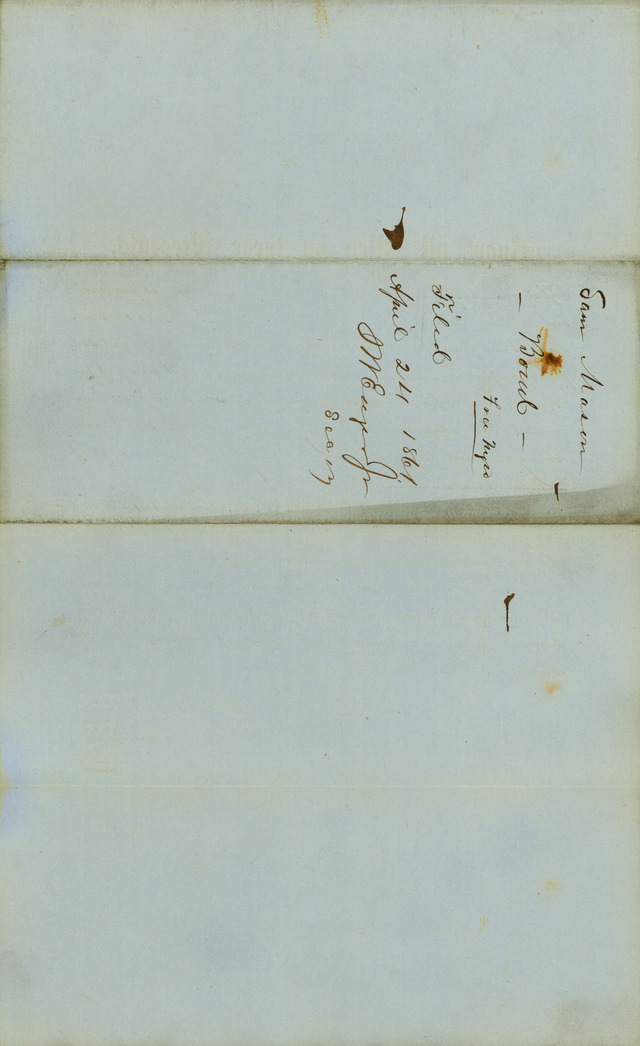 Sam Mason
— Bond —
Free Negro
Filed
April 24 1861